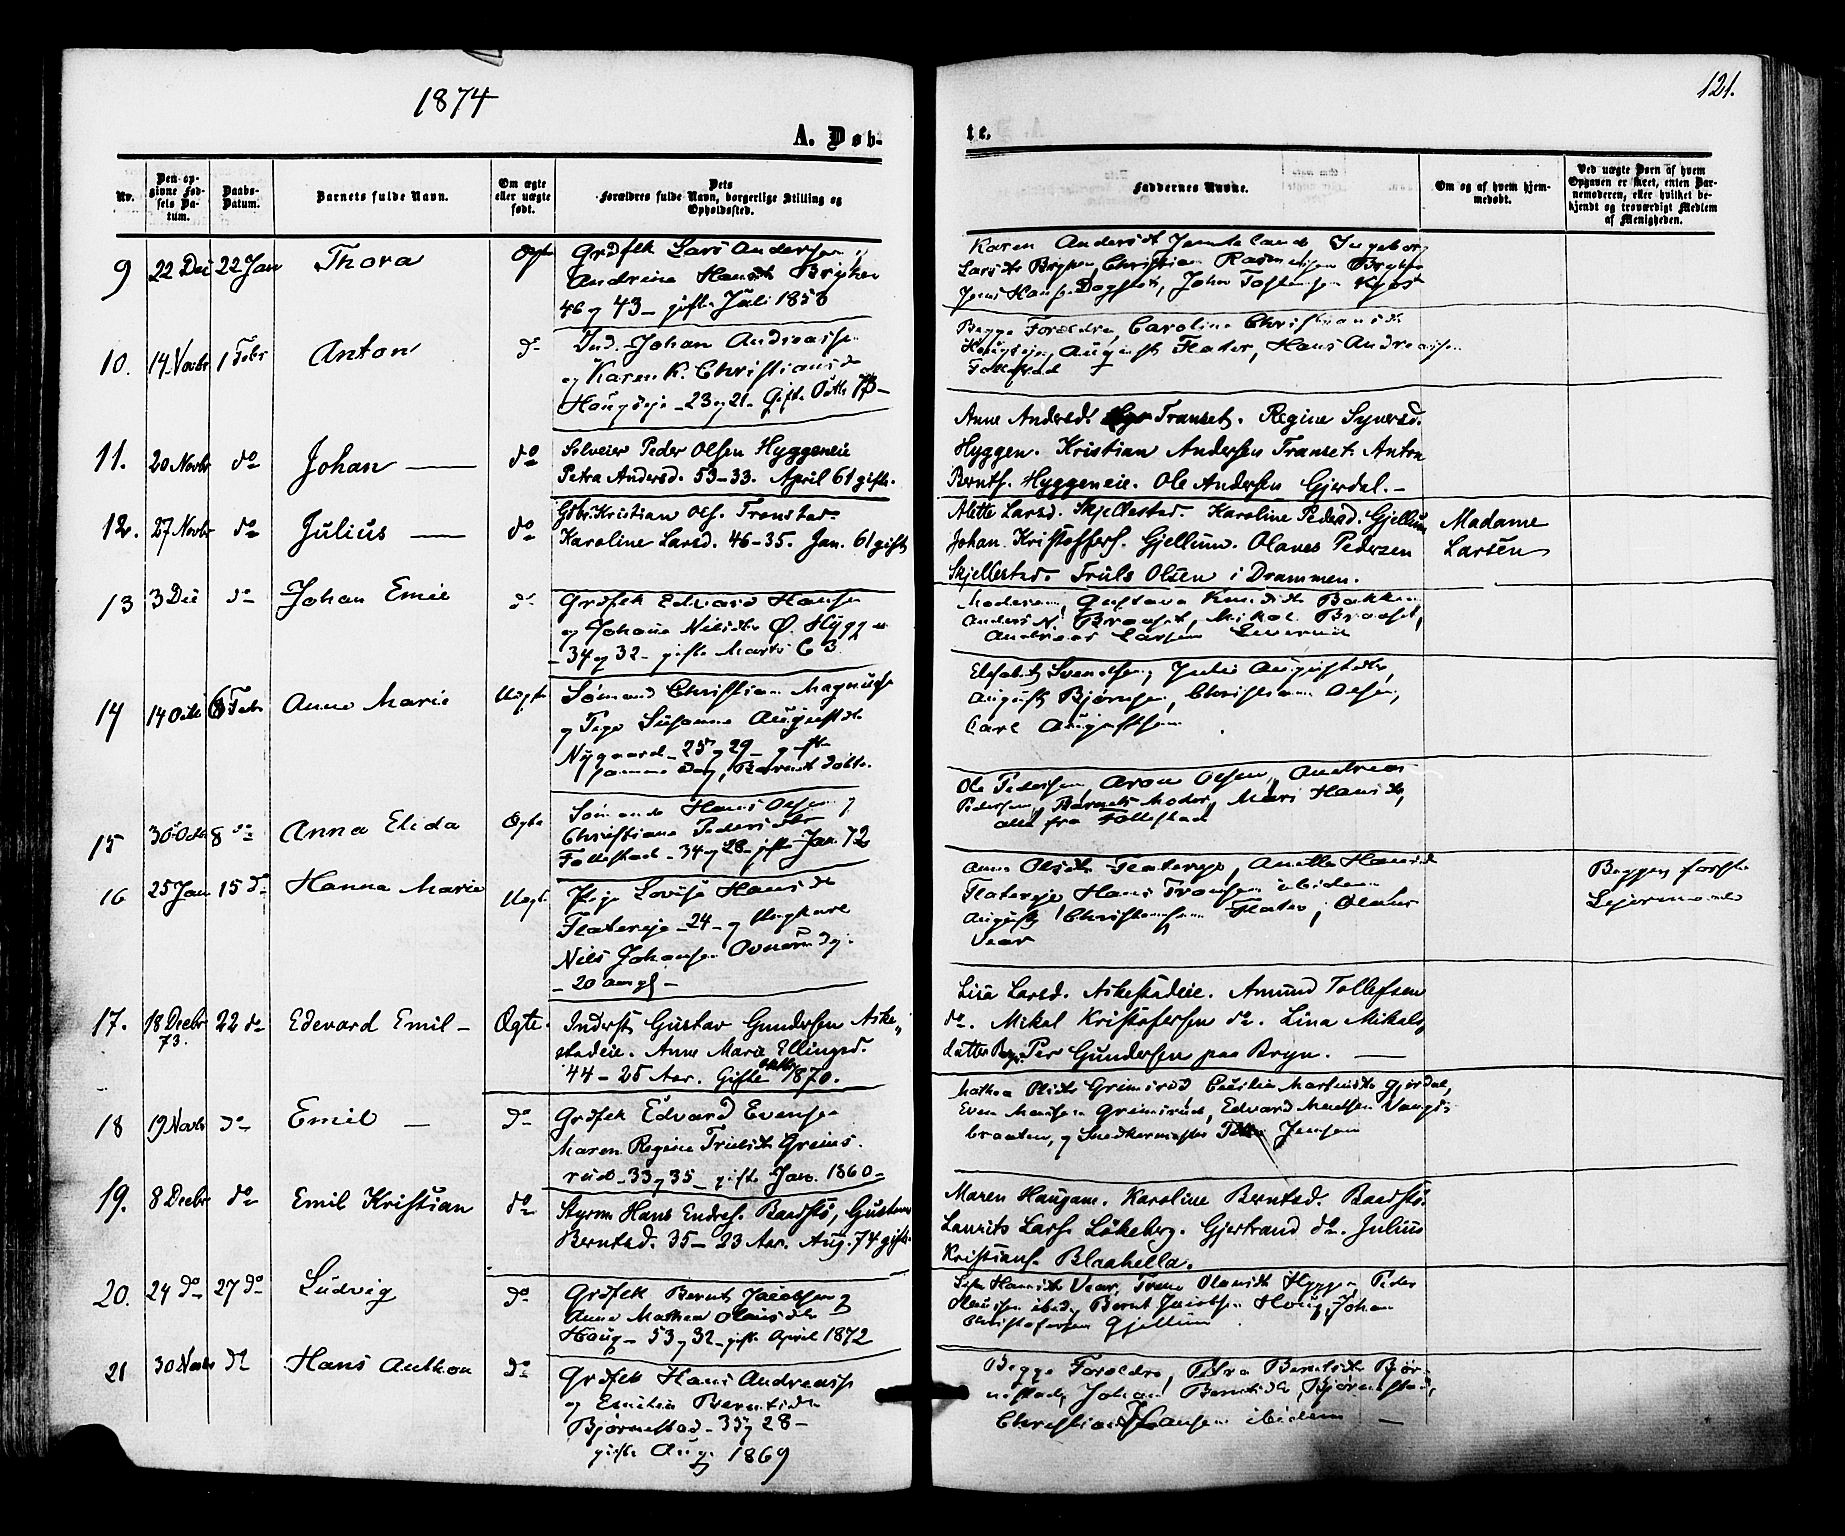 1874
121.
A. Døb-
te.
Nr.
Den op-
givne Fød-
sels Da-
tum.
Daabs-
Datum.
Barnets fulde Navn.
Om ægte
eller uægte
født.
Dets
Forældres fulde Navn, borgerlige Stilling og
Opholdssted.
Faddernes Navne.
Om og af hvem hjem-
medøbt.
Ved uægte Børn af hvem
Opgaven er skeet, enten Bar-
nemoderen, eller hvilket be-
kjendt og troværdigt Medlem
af Menigheden.
9 22 Dec 22 Jan Thora Ægte
Grdfek Lars Andersen
Andrine Hansdt
46 og 43 - gifte Juli 1858
Karen Andersdt Ingeborg
Larsdt Christian Rasmussen
10. 14 Novbr 1 Febr Anton do
Ind. Johan Andreassen
og Karen K. Christiansd
23 og 21. Gifte 73
Begge Forældre, Caroline Christiansdt
August Flater, Hans Andreassen
Follestad
11. 20 Novbr do Johan do
Selveier Peder Olsen Hyggeneie
Petra Andersd. 53-33. April 61 gifte.
Anne Andersd. Transet. Regine Syversd.
Hyggen. Kristian Andersen Transet. Antra
Bernts. Hyggeneie. Ole Andersen Gjerdal.
12. 27 Novbr do Julius do
Gbr. Kristian Ols. Tronstad
Karoline Larsd. 46-35. Jan. 61 gift
Alette Larsd. Skjellestad. Karoline Pedersd. Gjellum
Johan Kristoffers. Gjellum. Olaves Pedersen
Skjellestad. Truls Olsen i Drammen.
Madame
Larsen
13 3 Dec do Johan Emil do
Grdfek Edvard Hansen
og Johanne Nilsdtr Ø. Hyggen
- 34 og 32 - gifte Marts 63
Moderen, Gustava Knudsdt Bakken
Anders N. Braaset, Mikal Braaset,
Andreas Larsen
14 14 Octb 8 Febr Anne Marie Uægte
Sømand Christian Magnus
og Pige Susanne Augustdt
Nygaard - 25 og 29 - gift
samme Dag, Barnet døbt.
Elisabeth Svendsen, Julie Augustdtr,
August Bjørnsen, Christian Olsen,
Carl Augustsen
15 30 Octb 8 do Anna Elida Ægte
Sømand Hans Olsen og
Christiane Pedersdtr
Follestad - 34 og 28 - gifte Jan. 72
Ole Pedersen, Aron Olsen, Andreas
Pedersen, Barnets Moder, Mari Hansdt,
alle fra Follestad
16 25 Jan 15 do Hanna Marie Uægte
Pige Lovise Hansdt
Flatereje - 24 - og Ungkarl
Nils Johansen
- 20 Aar gl -
Anne Olsdt Flatereje, Anette Hansdt
Flatereje Hans Fransen ibidem
August Christensen Flater, Olaus
Vear
Begges første
Leiermaal
17. 18 Decbr 73. 22 do Edevard Emil - Ægte.
Inderst Gustav Gundersen Aske-
stadeie. Anne Marie Ellingsd.
44 - 25 Aar. Gifte Oktbr 1870.
Lisa Larsd. Askestadeie. Amund Tollefsen
do. Mikal Kristofersen do. Lina Mikels
datter Per Gundersen paa Bryn.
18 19 Novbr do Emil - do
Grdfek Edvard Evensen
Maren Regine Trulsdt Grims-
rud - 33 og 35 - gifte Jan. 1860 -
Mathea Olsdt Grimsrud Cecilie Martinsdt Gjerdal,
Even Madsen Grimsrud, Edvard Madsen
braaten, og Snedkermester Jensen
19. 8 Decbr do Emil Kristian do
Styrm Hans Endres. Baadstø, Gustava
Berntsd. 35 - 23 Aar. Aug. 74 gifte.
Maren Haugam. Karoline Berntsd. Baadstø.
Laurits Lars. Løkeberg. Gjertrand do. Julius
Kristians. Blaahella.
20. 24 do 27 do Ludvig do
Grdfek Bernt Jacobsen og
Anne Mathea Hansdtr
Haug - 53 og 32 - gifte April 1872
Hansdt Vear, Trine Olavsdt Hyggen, Peder
Bernt Jacobsen Houg, Johan
Christofersen Gjellum
21 30 Novbr do Hans Anthon do
Grdfek Hans Andreassen
og Emilie Berntsdt
Bjørnestad - 33 og 28 -
gifte Aug. 1869
Begge Forældre, Petra Berntsdt Bjør-
nestad, Johan Berntsdt, Bjørnestad,
Christian Hansen ibidem -